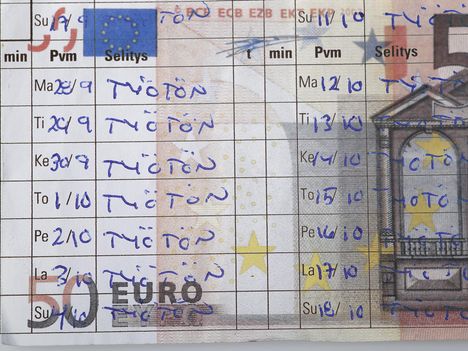 Su 27/9 TYÖTÖN Su 11/10 TYÖTÖN
BCE ECB EZB EKT EKP
min Pvm Selitys t min Pvm Selitys
Ma 28/9 TYÖTÖN Ma 12/10 TYÖTÖN
Ti 29/9 TYÖTÖN Ti 13/10 TYÖTÖN
Ke 30/9 TYÖTÖN Ke 14/10 TYÖTÖN
To 1/10 TYÖTÖN To 15/10 TYÖTÖN
Pe 2/10 TYÖTÖN Pe 16/10 TYÖTÖN
La 3/10 TYÖTÖN La 17/10 TYÖTÖN
50 EURO
Su 4/10 TYÖTÖN Su 18/10 TYÖTÖN